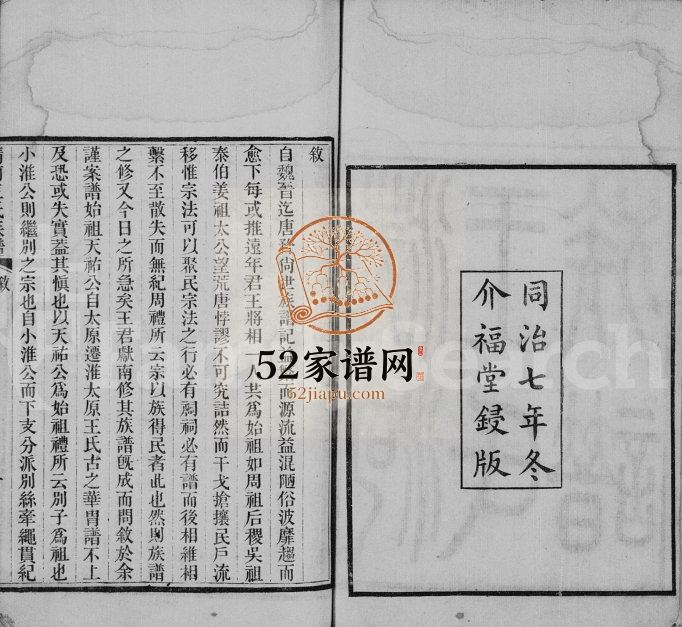 同治七年冬
介福堂鋟版
敘
自魏晉迄唐 尚世族譜記 而源流益混陋俗波靡趨而
愈下每或推遠年君王將相一人共為始祖如周祖后稷吳祖
泰伯姜祖太公望荒唐悖謬不可究詰然而干戈搶攘民戶流
移惟宗法可以聚民宗法之行必有祠祠必有譜而後相維相
繫不至散失而無紀周禮所云宗以族得民者此也然則族譜
之修又今日之所急矣王君獻南修其族譜既成而問敘於余
謹案譜始祖天祐公自太原遷淮太原王氏古之華胄譜不上
及恐或失實蓋其慎也以天祐公為始祖禮所云別子為祖也
小淮公則繼別之宗也自小淮公而下支分派別絲牽繩貫紀
王氏族譜 敘
52家谱网
52jiapu.com